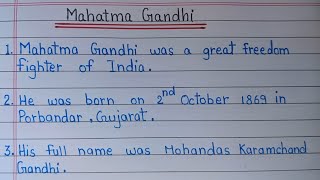 Mahatma Gandhi
1. Mahatma Gandhi was a great freedom
fighter of India.
2. He was born on 2nd October 1869 in
Porbandar, Gujarat.
3. His full name was Mohandas Karamchand
Gandhi.